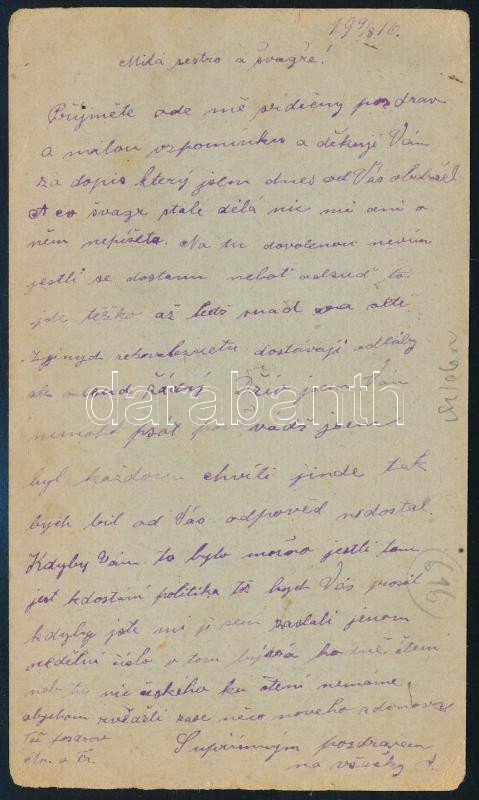 19 9/8 16.
Milá sestro a švagře!
Přijměte ode mě srdečný pozdrav
a malou vzpomínku a děkuji Vám
za dopis který jsem dnes od Vás obdržel
A co švagr stale dělá nic mi ani o
něm nepíšete. Na tu dovolenou nevím
jestli se dostanu neboť odsuď to
jde těžko až leda snad
dostávají
žádný Vám
darabanth
psát jsem
byl každou chvíli jinde tak
bych bil od Vás odpověd nedostal.
Kdyby Vám to bylo možno jestli tam
jest kdostání politika tož bych Vás prosil
kdyby jste mi ji sem zaslali jenom
nedělní číslo v tom bývá hodně čtení
neb tu nic českého ku čtení nemáme
abychom zvěděli zase něco nového zdomova
Též pozdrav
Supřímným pozdravem
na všecky
616